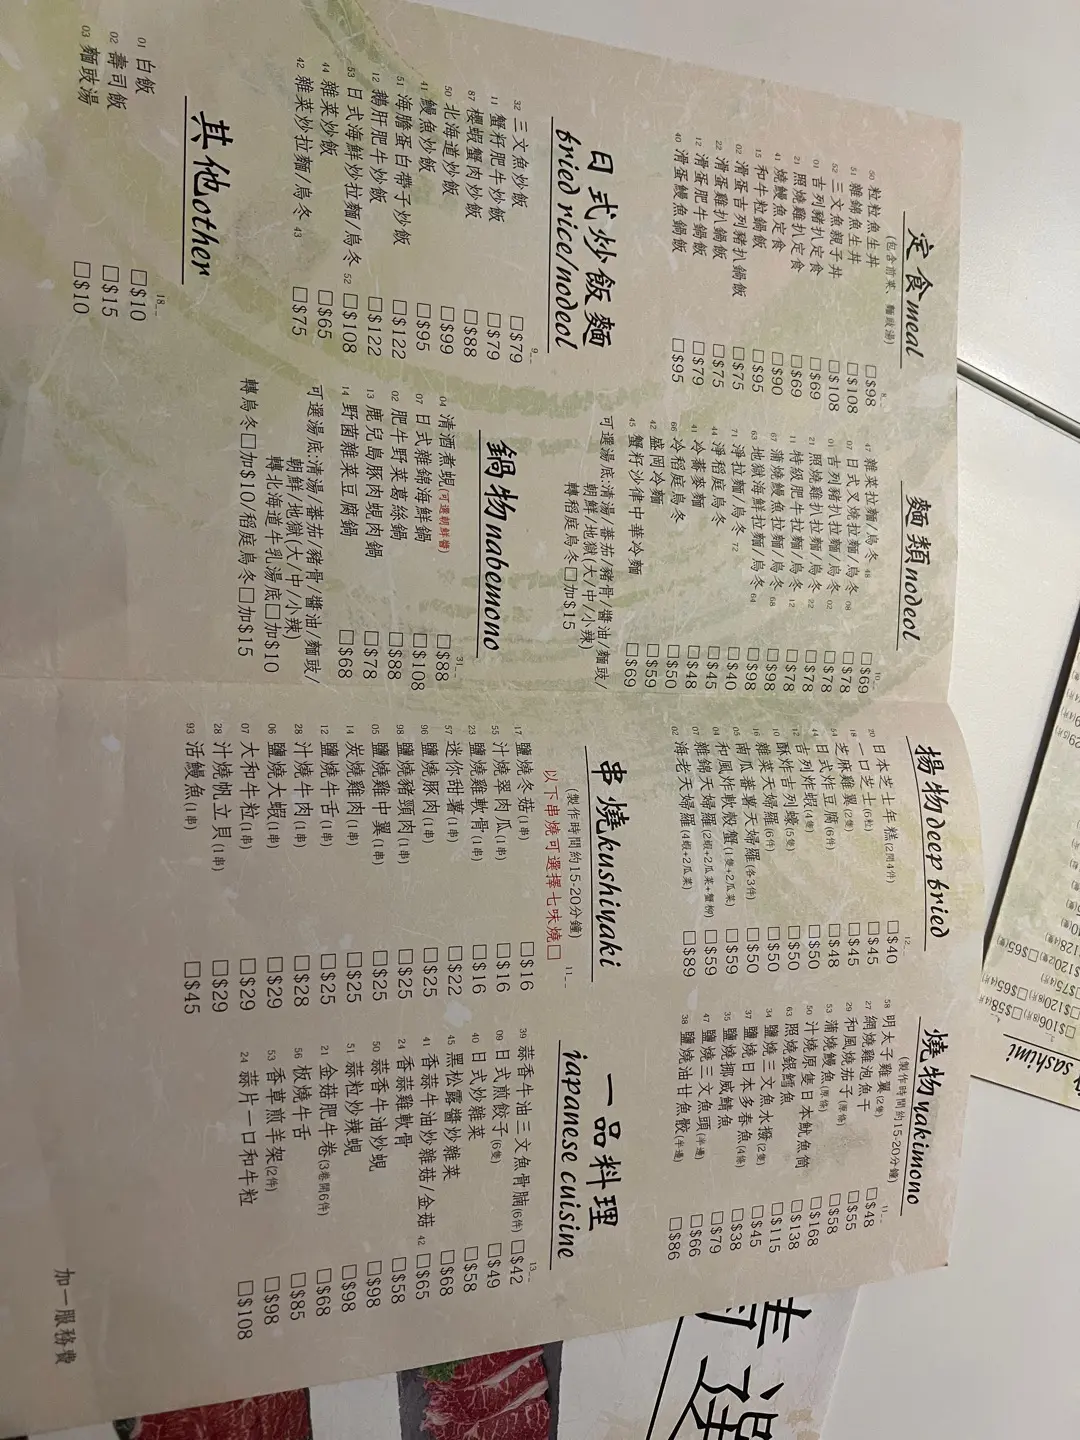 定食meal
(包含前菜、麵豉湯)
8--
50 粒粒魚生丼 □$98
51 雜錦魚生丼 □$108
52 三文魚親子丼 □$108
01 吉列豬扒定食 □$69
21 照燒雞扒定食 □$69
41 燒鰻魚定食 □$90
15 和牛粒鍋飯 □$95
02 滑蛋吉列豬扒鍋飯 □$75
22 滑蛋雞扒鍋飯 □$75
12 滑蛋肥牛鍋飯 □$79
40 滑蛋鰻魚鍋飯 □$95
日式炒飯麵
fried rice/nodeol
9--
32 三文魚炒飯 □$79
11 蟹籽肥牛炒飯 □$79
87 櫻蝦蟹肉炒飯 □$88
50 北海道炒飯 □$99
41 鰻魚炒飯 □$95
51 海膽蛋白帶子炒飯 □$122
12 鵝肝肥牛炒飯 □$122
53 日式海鮮炒拉麵/烏冬 52 □$108
44 雜菜炒飯 □$65
42 雜菜炒拉麵/烏冬 43 □$75
其他other
18--
01 白飯 □$10
02 壽司飯 □$15
03 麵豉湯 □$10
麵類nodeol
10--
47 雜菜拉麵/烏冬 48 □$69
07 日式叉燒拉麵/烏冬 08 □$78
01 吉列豬扒拉麵/烏冬 02 □$78
21 照燒雞扒拉麵/烏冬 22 □$78
11 特級肥牛拉麵/烏冬 12 □$78
67 蒲燒鰻魚拉麵/烏冬 68 □$98
63 地獄海鮮拉麵/烏冬 64 □$98
71 淨拉麵/烏冬 72 □$40
44 淨稻庭烏冬 □$45
41 冷蕎麥麵 □$48
66 冷稻庭烏冬 □$50
42 盛岡冷麵 □$59
45 蟹籽沙律中華冷麵 □$69
可選湯底:清湯/蕃茄/豬骨/醬油/麵豉/
朝鮮/地獄(大/中/小辣)
轉稻庭烏冬□加$15
鍋物nabemono
31--
04 清酒煮蜆(可選朝鮮醬) □$88
07 日式雜錦海鮮鍋 □$108
02 肥牛野菜葛絲鍋 □$88
13 鹿兒島豚肉蜆肉鍋 □$78
14 野菌雜菜豆腐鍋 □$68
可選湯底:清湯/蕃茄/豬骨/醬油/麵豉/
朝鮮/地獄(大/中/小辣)
轉北海道牛乳湯底□加$10
轉烏冬□加$10/稻庭烏冬□加$15
揚物deep fried
12--
20 日本芝士年糕(2問4件) □$40
18 一口芝士(6粒) □$45
54 芝麻雞翼(2隻) □$45
44 日式炸豆腐(6件) □$48
吉列炸蝦(4隻) □$50
10 酥炸吉列蠔(5隻) □$50
16 雜菜天婦羅(6件) □$50
05 南瓜蕃薯天婦羅(各3件) □$50
04 和風炸軟殼蟹(1隻+2瓜菜) □$59
07 雜錦天婦羅(2蝦+2瓜菜+蟹柳) □$59
02 海老天婦羅(4蝦+2瓜菜) □$89
串燒kushiyaki
(製作時間約15-20分鐘)
以下串燒可選擇七味燒□
11--
17 鹽燒冬菇(1串) □$16
55 汁燒翠肉瓜(1串) □$16
23 鹽燒雞軟骨(1串) □$16
57 迷你甜薯(1串) □$22
96 鹽燒豚肉(1串) □$25
98 鹽燒豬頸肉(1串) □$25
05 鹽燒雞中翼(1串) □$25
14 炭燒雞肉(1串) □$25
12 鹽燒牛舌(1串) □$25
28 汁燒牛肉(1串) □$28
06 鹽燒大蝦(1串) □$29
07 大和牛粒(1串) □$29
28 汁燒帆立貝(1串) □$29
93 活鰻魚(1串) □$45
燒物yakimono
(製作時間約15-20分鐘)
11--
58 明太子雞翼(2隻) □$48
27 網燒雞泡魚干 □$55
29 和風燒茄子(原條) □$58
53 蒲燒鰻魚(原條) □$168
50 汁燒原隻日本魷魚筒 □$138
63 照燒銀鱈魚 □$115
34 鹽燒三文魚水撥(2隻) □$45
37 鹽燒日本多春魚(4條) □$38
35 鹽燒挪威鯖魚 □$79
47 鹽燒三文魚頭(半邊) □$66
38 鹽燒油甘魚骹(半邊) □$86
一品料理
japanese cuisine
13--
39 蒜香牛油三文魚骨腩(6件) □$42
09 日式煎餃子(6隻) □$49
40 日式炒雜菜 □$58
45 黑松露醬炒雜菜 □$68
41 香蒜牛油炒雜菇/金菇 42 □$65
24 香蒜雞軟骨 □$58
50 蒜香牛油炒蜆 □$98
51 蒜粒炒辣蜆 □$98
21 金菇肥牛卷(3卷開6件) □$68
56 板燒牛舌 □$85
53 香草煎羊架(2件) □$98
24 蒜片一口和牛粒 □$108
加一服務費
sashimi
□$106(8片)□$58(4片)
□$120(8片)□$65(4片)
□$75(4片)